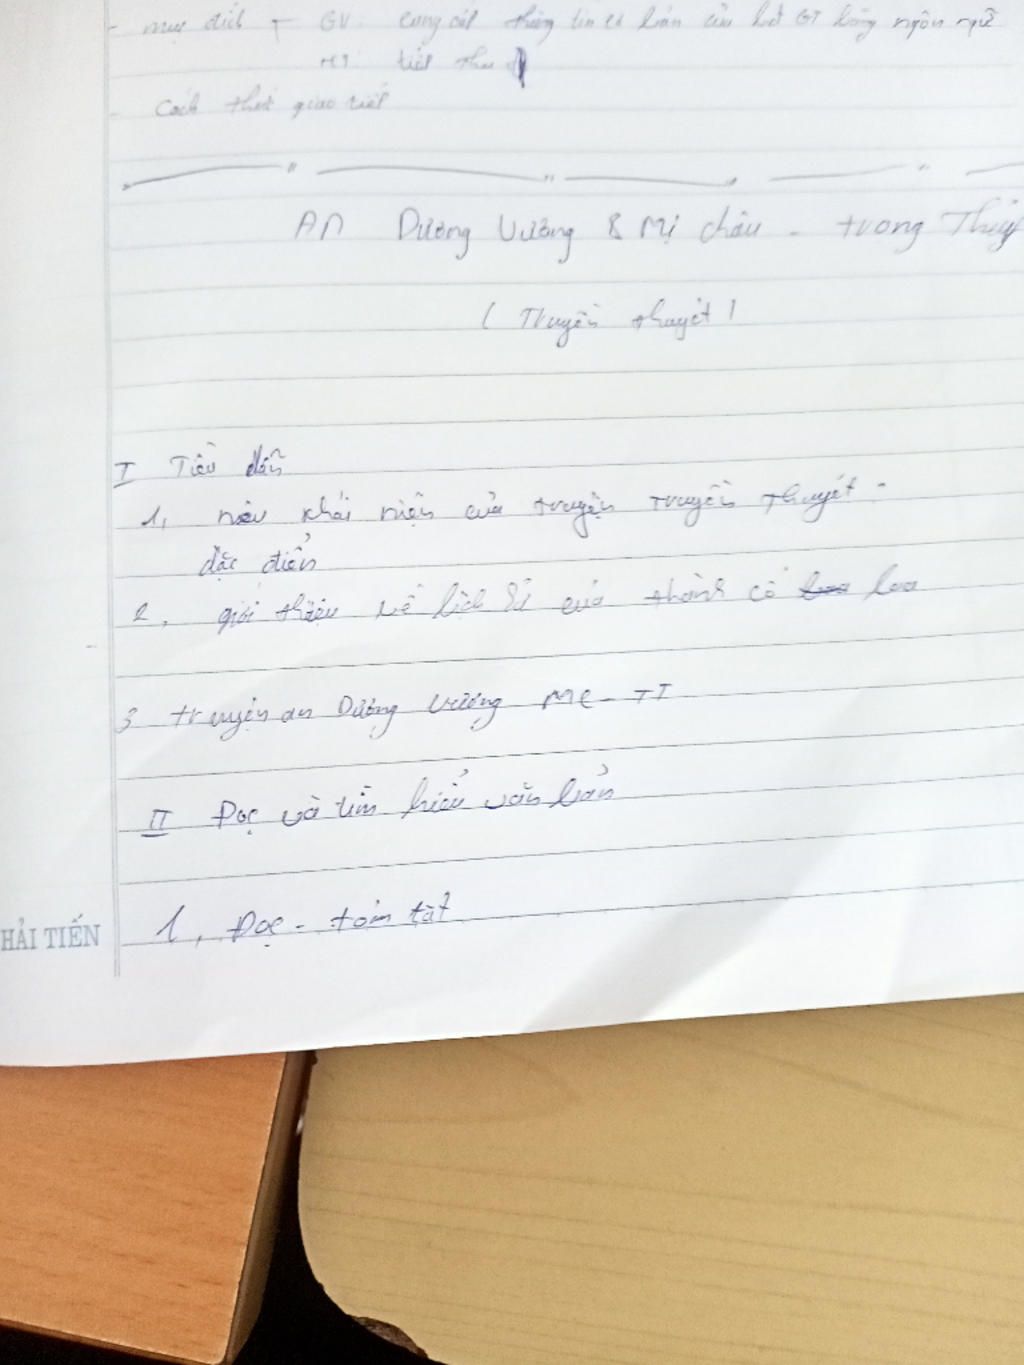 - mục đích + GV: cung cấp thông tin cơ bản của hđ GT bằng ngôn ngữ
HS: tiếp thu
- Cách thức giao tiếp
AN Dương Vương & Mị châu - trọng Thủy
( Truyền thuyết )
I Tiểu dẫn
1, nêu khái niệm của truyện truyền thuyết -
đặc điểm
2, giới thiệu về lịch sử của thành cổ loa
3 truyện an Dương Vương MC - TT
II Đọc và tìm hiểu văn bản
1, Đọc - tóm tắt
HẢI TIẾN